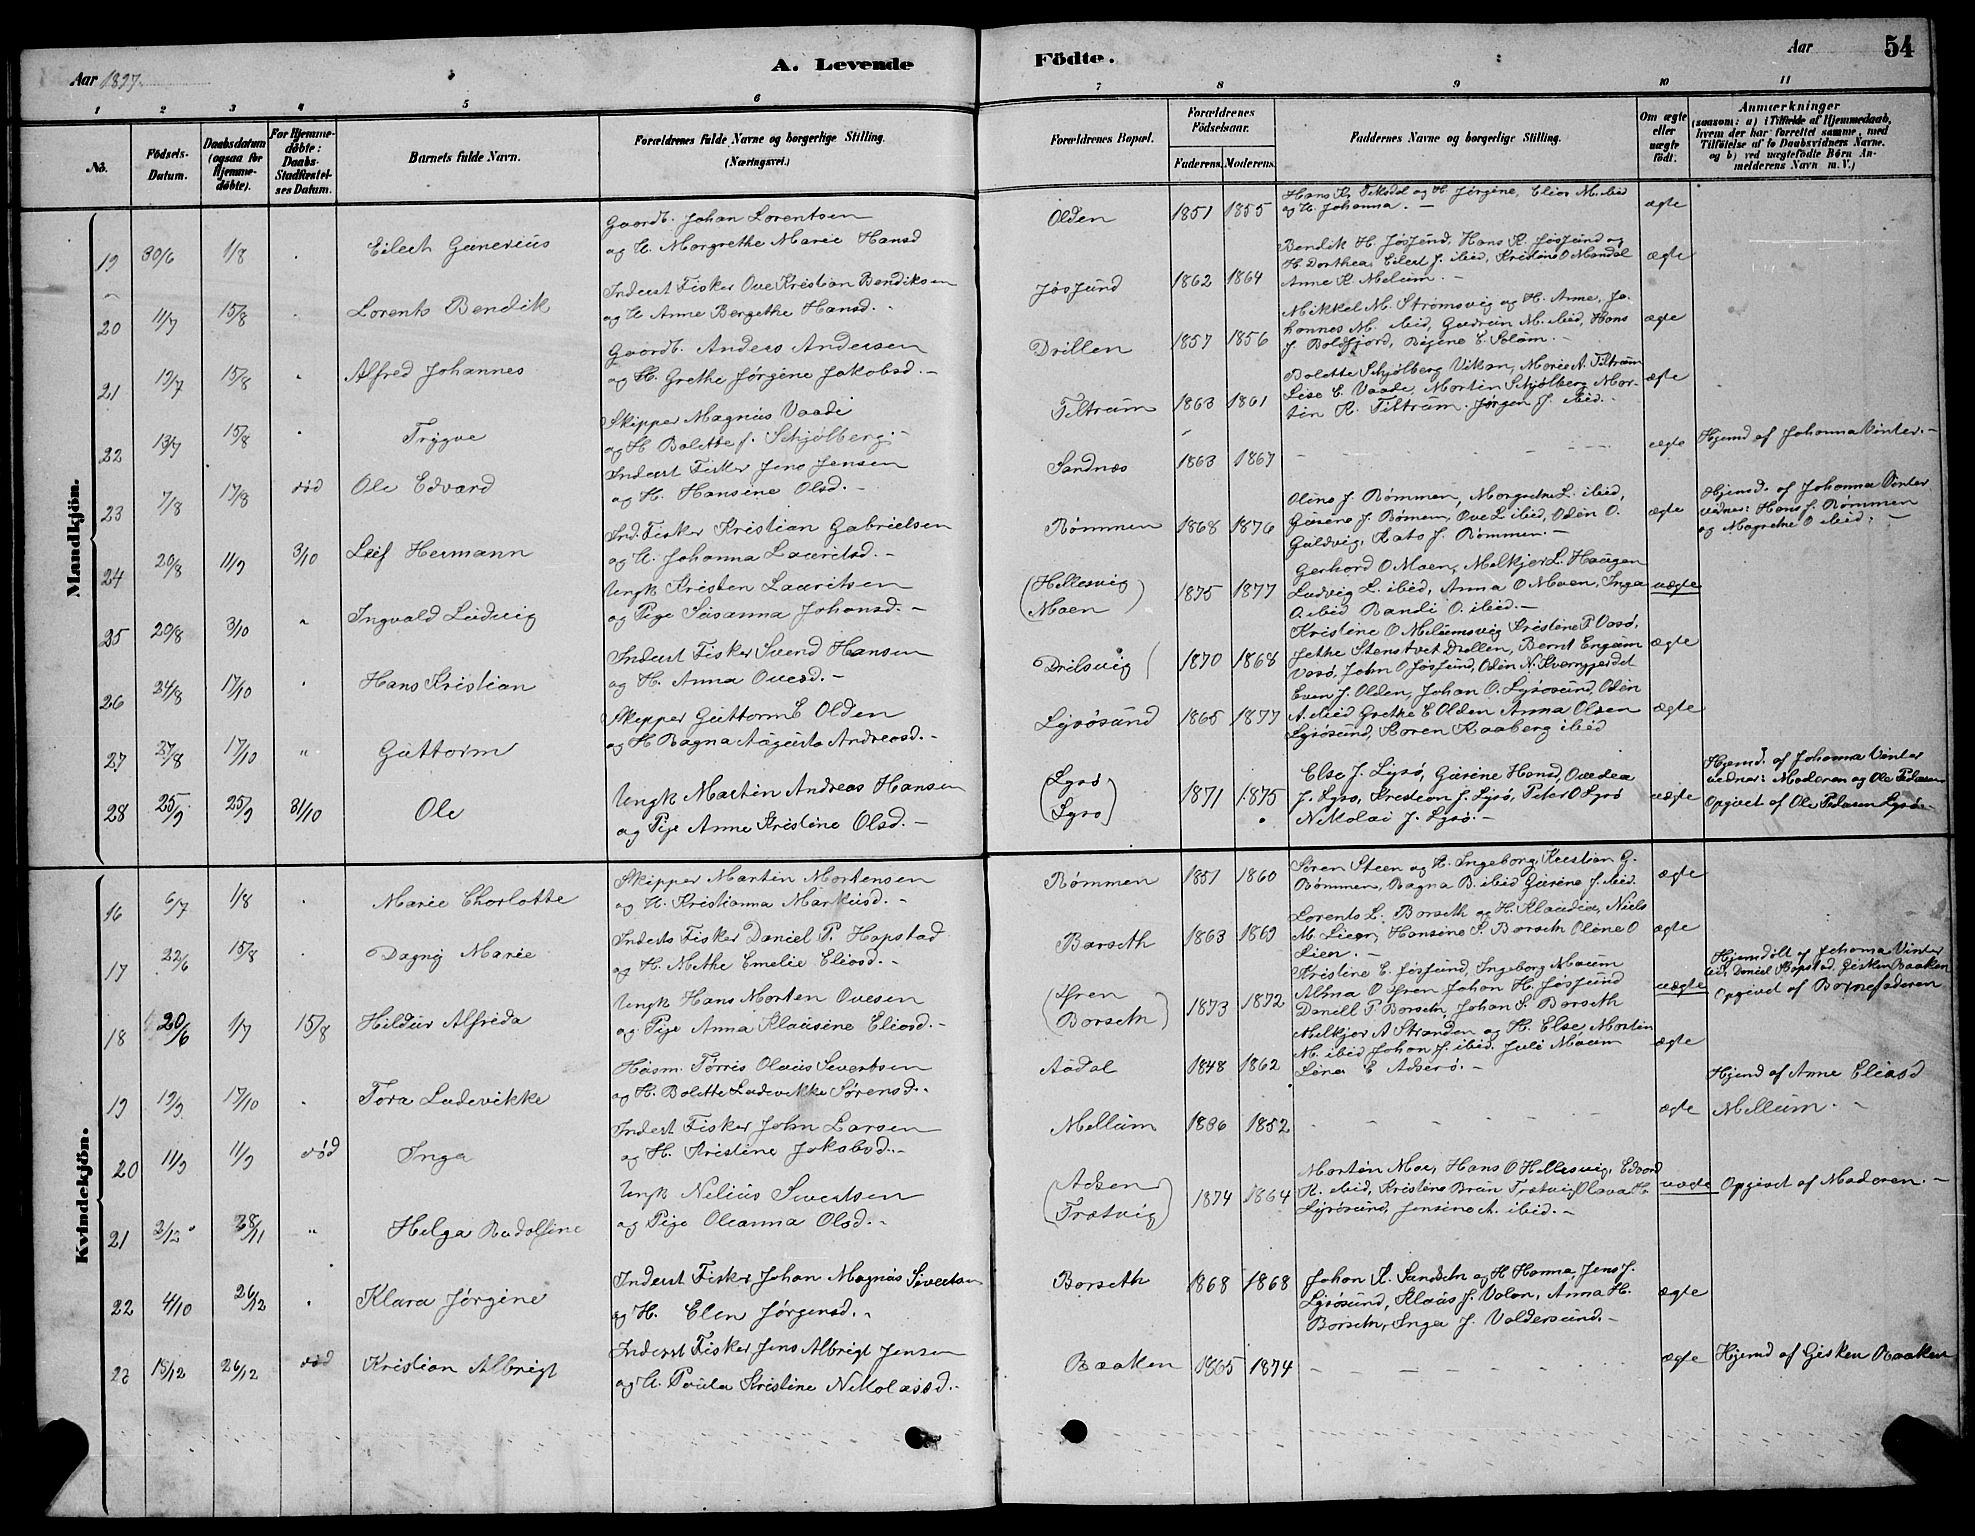 Aar 1897.
A. Levende
Födte.
Aar
54
1 2 3 4 5 6 7 8 9 10 11
No.
Födsels-Datum.
Daabsdatum (ogsaa for Hjemme-döbte).
For Hjemme-döbte: Daabs-Stadfæstel-ses Datum.
Barnets fulde Navn.
Forældrenes fulde Navne og borgerlige Stilling.
(Næringsvei.)
Forældrenes Bopæl.
Forældrenes Födselsaar.
Faderens. Moderens.
Faddernes Navne og borgerlige Stilling.
Om ægte eller uægte födt.
Anmærkninger
(saasom: a) i Tilfælde af Hjemmedaab,
hvem der har forrettet samme, med
Tilföielse af to Daabsvidners Navne,
og b) ved uægtefödte Börn An-
melderens Navn m. V.)
Mandkjön.
19 30/6 1/8 Eilert Gunerius
Gaardb. Johan Lorentsen
og H. Margrethe Marie Hansd
Olden 1851 1855
og H. Johanna. –
ægte
20 11/7 15/8 Lorents Bendik
Inderst Fisker Ove Kristian Bendiksen
og H Anne Bergethe Hansd. –
Jøssund 1862 1864
Bendik H. Jøssund, Hans K. Jøssund og
H. Dorthea Eilert J. ibid, Kristine O Mandal
Anne K. Melum. –
ægte
21 19/7 15/8 Alfred Johannes
Gaardb. Anders Andersen
og H. Grethe Jørgine Jakobsd. –
Drillen 1857 1856
Mikkel M. Strømsvig og H. Anne, Jo-
hannes M. ibid, Gudrun M. ibid, Hans
ægte
22 13/7 15/8 Trygve
Skipper Magnus Vaade
og H Bolette J. Schjølberg. –
Tiltrum 1863 1861
Bolette Schjølberg Vikan, Marie A. Tiltrum
Lise E. Vaade, Morten Schjølberg Mor-
ten K. Tiltrum. Jørgen J. ibid. –
ægte
23 7/8 17/8 død Ole Edvard
Inderst Fisker Jens Jensen
og H. Hansine Olsd. –
Sandnæs 1863 1867
ægte
Hjemd af Johanna Vinter. –
24 20/8 11/9 3/10 Leif Hermann
Ind. Fisker Kristian Gabrielsen
og H. Johanna Lauritsd. –
Rømmen 1868 1876
Oline J. Rømmen, Margrethe L. ibid,
Gurine J. Rømen, Ove L ibid, Odin O.
Guldvig, Kats J. Rømmen. –
ægte
Hjemd. af Johanna Vinter
vidner: Hans J. Rømmen
og Magrete O ibid: –
25 20/8 3/10 " Ingvald Ludvig
Ungk Kristen Lauritsen
og Pige Susanna Johansd. –
(Hellesvig
Moen) 1875 1877
Gerhard O Moen, Melkjer L. Haugen
Ludvig L. ibid, Anna O Moen, Inga
O. ibid Randi O. ibid. –
uægte
26 24/8 17/10 Hans Kristian
Inderst Fisker Svend Hansen
og H. Anna Ovesd. –
Drilsvig 1870 1868
Kristine O Melumsvig Kristine P Vasø,
Jethe Stenstvet Drillen, Bernt Engum
Vasø, John O Jøssund, Odin N. Kverngjerdet
ægte
27 27/8 17/10 " Guttorm
Skipper Guttorm E Olden
og H Ragna Augusta Andreasd. –
Lysøsund 1865 1877
Even J. Olden, Johan O. Lysøsund, Odin
A. ibid Grethe E Olden Anna Olsen
Lysøsund, Karen Raaberg ibid
ægte
28 25/9 25/9 31/10 Ole
Ungk Martin Andreas Hansen
og Pige Anne Kristine Olsd. –
(Lysø
Lysø) 1871 1875
Else J. Lysø, Gurine Hansd, Ovedea
J. Lysø, Kristian J. Lysø, Peter O Lysø
Nikolai J. Lysø. –
uægte
Hjemd. af Johanna Vinter
vidner: Moderen og Ole Pedersen
Opgivet af Ole Pedersen Lysø. –
Kvindekjön.
16 6/7 1/8 Marie Charlotte
Skipper Martin Mortensen
og H. Kristianna Markusd. –
Rømmen 1851 1860
Søren Steen og H. Ingeborg, Kristian G.
Rømmen, Ragna B. ibid Gurine J. ibid.
ægte
17 22/6 15/8 Dagny Marie
Inderts Fisker Daniel P. Hopstad
og H. Methe Emelie Eliasd. –
Barseth 1863 1869
Lorents L. Borseth og H. Klaudia, Niels
M. Lien, Hansine P. Borseth Oline O
Lien. –
ægte
18 20/6 1/7 15/8 Hildur Alfrida
Ungk Hans Morten Ovesen
og Pige Anna Klausine Eliasd. –
Borseth) 1873 1872
Kristine E. Jøssund, Ingeborg Maum
Johan H. Jøssund
Daniell P. Borseth, Johan S. Borseth
uægte
Hjemdøbt af Johanna Vinter
Opgivet af Barnefaderen
19 19/9 17/10 Tora Ludevikke
Husm. Torris Olaus Sivertsen
og H. Bolette Ludevikke Sørensd. –
Aadal 1848 1862
Melkjer A Stranden og H. Else, Morten
M. ibid Johan J. ibid. Juli Maum
ægte
20 11/9 11/9 død Inga
Inderst Fisker John Larsen
og H. Kristine Jakobsd. –
Mellum 1836 1852
ægte
Hjemd af Anne Eliasd
Mellum. –
21 2/12 28/11 " Helga Rudolfine
Ungk Nelius Sivertsen
og Pige Oleanna Olsd. –
Trætvig) 1874 1864
Morten Moe, Hans O Hellesvig, Edvard
K. ibid, Kristine Brun Trætvig Olava H.
Lysøsund, Jensine A. ibid. –
uægte
Opgivet af Moderen. –
22 4/10 26/12 Klara Jørgine
Inderst Fisker Johan Magnus Sivertsen
og H. Elen Jørgensd. –
Borseth 1868 1868
Johan K. Sundseth og H Hanna, Jens J.
Lysøsund, Klaus J. Valen, Anna H.
Borseth, Inga J. Valdersund. –
ægte
23 15/12 26/12 død Kristian Albrigt
Inderst Fisker Jens Albrigt Jensen
og H. Paula Kristine Nikolaisd. –
Baaken 1865 1874
ægte
Hjemd af Gisken Baaken